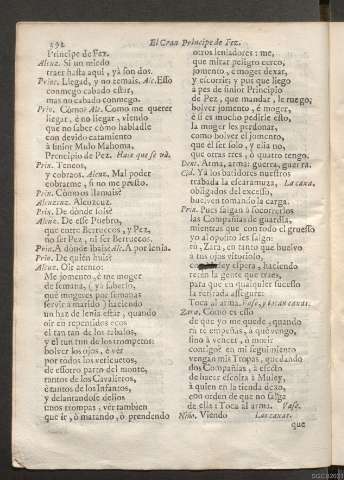 292
El Gran Principe de Fez.
Principe de Fez.
Alcuz. Si un miedo
traer hasta aqui, yà son dos.
Prin. Llegad, y no temais. Alc. Esso
conmego cabado estàr,
mas no cabado conmego.
Prin. Còmo? Alc. Como me querer
llegar, è no llegar, viendo
que no saber còmo hablalle
con devido catamiento
à sinior Mulo Mahoma,
Prencipio de Pez. Hace que se và.
Prin. Teneos,
y cobraos. Alcuz. Mal poder
cobrarme, si no me presto.
Prin. Còmo os llamais?
Alcuzcuz. Alcuzcuz.
Prin. De dònde sois?
Alcuz. De esse Pueblo,
que entre Berruecos, y Pez,
no ser Pez, ni ser Berruecos.
Prin. A dònde ibais? Alc. A por lenia.
Prin. De quièn huis?
Alcuz. Oìr atento:
Me jomento, è me moger
de semana, (yà saberlo,
que mogeres por semanas
servir à marido) haciendo
un haz de lenia estàr, quando
oìr en repentidos ecos
el tan tan de los cabalos,
y el tus tun de los trompetos:
bolver los ojos, è vèr
por todos los vericuetos,
de essotro parto del monte,
tantos de los Cavalieros,
è tantos de los Infantos,
y delantandole dellos
unos tropas, vèr tambien
que ir, ò matando, ò prendendo
otros leniadores: me,
que mirar peligro cerco,
jomento, è moger dexar,
y escorrir; y pues que llego
à pes de sinior Principio
de Pez, que mandar, le ruego,
bolver jomento, è moger,
è si es mucho pedirle esto,
la muger les perdonar,
como bolver el jomento,
que el ser solo, y ella no,
que otras tres, ò quatro tengo.
Dent. Arma, arma: guerra, guerra.
Cid. Yà los batidores nuestros
trabada la escaramuza, La caxa.
obligados del excesso,
buelven tomando la carga.
Prin. Pues salgan à socorrerlos
las Compañias de guardia,
mientras que con todo el gruesso
yo al oposito les salgo:
tù, Zara, en tanto que buelvo
à tus ojos vitorioso,
espera, haciendo
retèn la gente que traes,
para que en qualquier sucesso
la retirada assegure:
Toca al arma. Vase, y tocan caxas.
Zara. Como es esso
de que yo me quede, quando
tù te empeñas, à què vengo,
sino à vencer, ò morir
contigo? en mi seguimiento
vengan mis Tropas, quedando
dos Compañias, à efecto
de hacer escolta à Muley,
à quien en la tienda dexo,
con orden de que no salga
de ella: Toca al arma. Vase.
Niño. Viendo Las caxas.
que